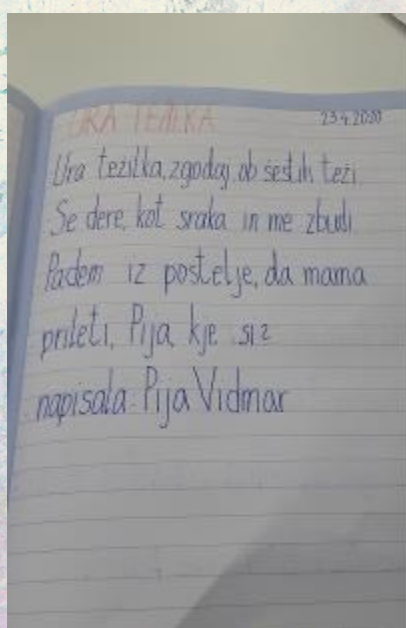 URA TEŽILKA 23.4.2020
Ura težilka, zgodaj ob šestih teži.
Se dere, kot sraka in me zbudi.
Padem iz postelje, da mama
prileti, Pija, kje si?
napisala: Pija Vidmar